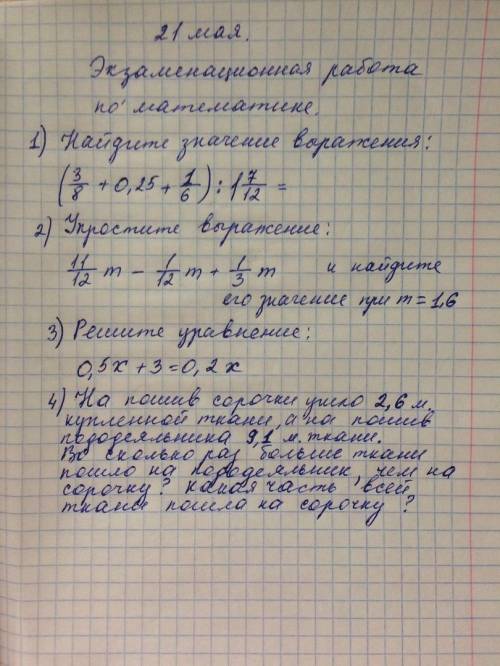 21 мая.
Экзаменационная работа
по математике.
1) Найдите значение выражения:
(3/8 + 0,25 + 1/6) : 1 7/12 =
2) Упростите выражение:
11/12 m - 1/12 m + 1/3 m и найдите
его значение при m = 1,6
3) Решите уравнение:
0,5x + 3 = 0,2x
4) На пошив сорочки ушло 2,6 м.
купленной ткани, а на пошив
пододеяльника 9,1 м. ткани.
Во сколько раз больше ткани
пошло на пододеяльник, чем на
сорочку? какая часть всей
ткани пошла на сорочку?